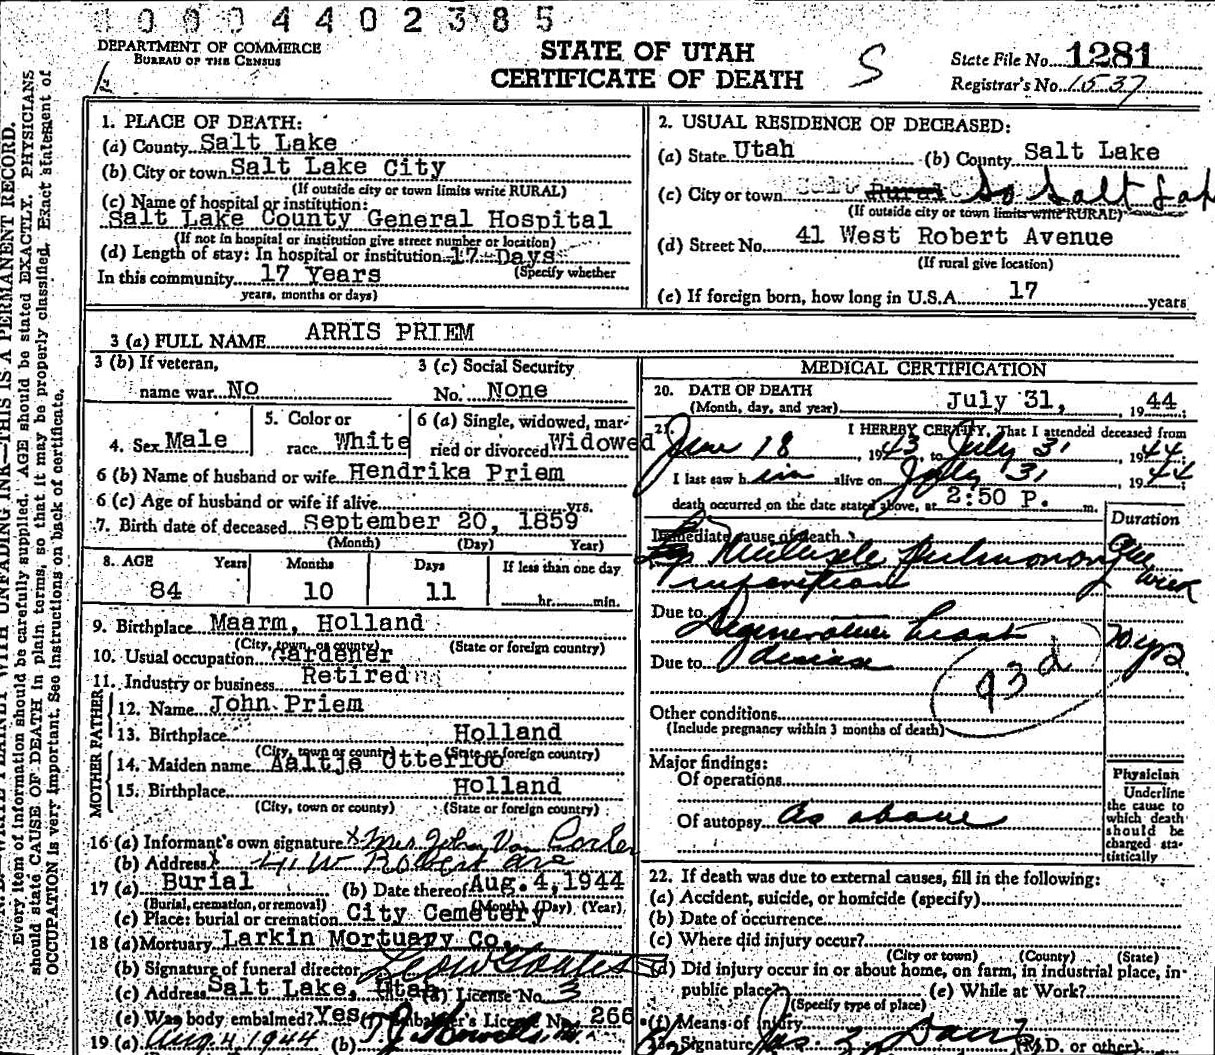 0004402385
DEPARTMENT OF COMMERCE
BUREAU OF THE CENSUS
STATE OF UTAH
CERTIFICATE OF DEATH
S
State File No. 1281
Registrar's No. 1537
1. PLACE OF DEATH:
(a) County Salt Lake
(b) City or town Salt Lake City
(If outside city or town limits write RURAL)
(c) Name of hospital or institution:
Salt Lake County General Hospital
(If not in hospital or institution give street number or location)
(d) Length of stay: In hospital or institution 17 Days
(Specify whether
In this community 17 Years
years, months or days)
2. USUAL RESIDENCE OF DECEASED:
(a) State Utah (b) County Salt Lake
(c) City or town Rural So Salt Lak
(If outside city or town limits write RURAL)
(d) Street No. 41 West Robert Avenue
(If rural give location)
(e) If foreign born, how long in U.S.A. 17 years
3 (a) FULL NAME ARRIS PRIEM
3 (b) If veteran,
name war No
3 (c) Social Security
No. None
4. Sex Male
5. Color or
race White
6 (a) Single, widowed, mar-
ried or divorced Widowed
6 (b) Name of husband or wife Hendrika Priem
6 (c) Age of husband or wife if alive yrs.
7. Birth date of deceased September 20, 1859
(Month) (Day) Year)
8. AGE Years Months Days If less than one day
84 10 11 hr. min.
9. Birthplace Maarm, Holland
(City, town, or county) (State or foreign country)
10. Usual occupation Gardener
11. Industry or business Retired
FATHER
12. Name John Priem
13. Birthplace Holland
(City, town or county) (State or foreign country)
MOTHER
14. Maiden name Aaltje Otterloo
15. Birthplace Holland
(City, town or county) (State or foreign country)
16 (a) Informant's own signature x Mrs John Van
(b) Address 41 W Robert Ave
17 (a) Burial (b) Date thereof Aug. 4, 1944
(Burial, cremation, or removal) (Month) (Day) (Year)
(c) Place: burial or cremation City Cemetery
18 (a) Mortuary Larkin Mortuary Co.
(b) Signature of funeral director
(c) Address Salt Lake, Utah (d) License No. 3
(e) Was body embalmed? Yes (f) Embalmer's License No. 266
19 (a) Aug 4 1944 (b)
MEDICAL CERTIFICATION
20. DATE OF DEATH
(Month, day, and year) July 31, 1944
21. I HEREBY CERTIFY, That I attended deceased from
June 18, 1943, to July 31, 1944
I last saw him alive on July 31, 1944
death occurred on the date stated above, at 2:50 P. m.
Duration
Immediate cause of death
Multiple Pulmonary One week
infarction
Due to Degenerative heart 20 yrs
Due to disease
93 d
Other conditions
(Include pregnancy within 3 months of death)
Major findings:
Of operations
Of autopsy as above
Physician
Underline
the cause to
which death
should be
charged sta-
tistically
22. If death was due to external causes, fill in the following:
(a) Accident, suicide, or homicide (specify)
(b) Date of occurrence
(c) Where did injury occur?
(City or town) (County) (State)
(d) Did injury occur in or about home, on farm, in industrial place, in
public place? (e) While at Work?
(Specify type of place)
(f) Means of injury
23. Signature (M.D. or other)
Every item of information should be carefully supplied. AGE should be stated EXACTLY. PHYSICIANS
should state CAUSE OF DEATH in plain terms, so that it may be properly classified. Exact statement of
OCCUPATION is very important. See instructions on back of certificate.
WRITE PLAINLY WITH UNFADING INK—THIS IS A PERMANENT RECORD.